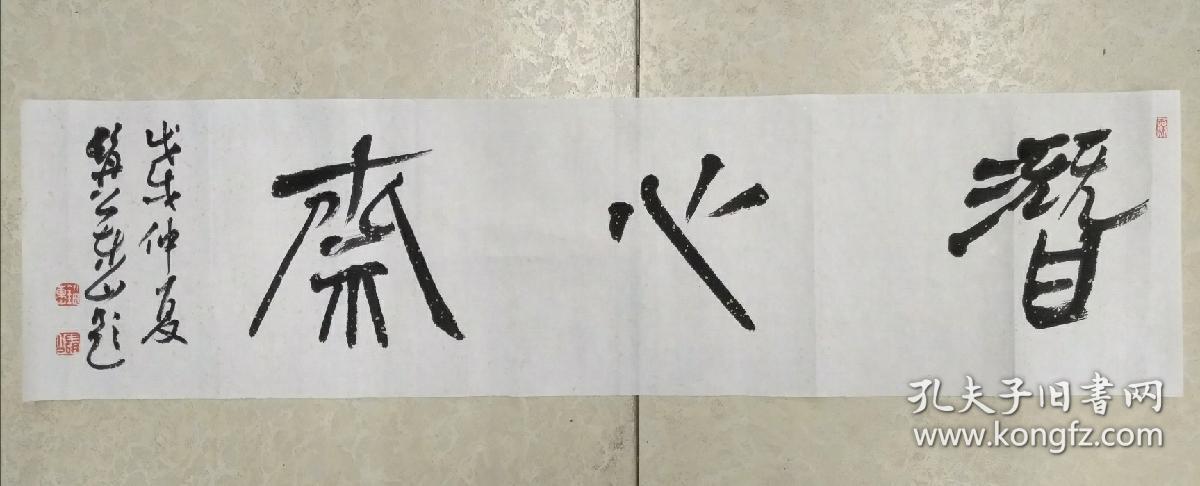 潛心斋
戊戌仲夏
山题
孔夫子旧书网
www.kongfz.com